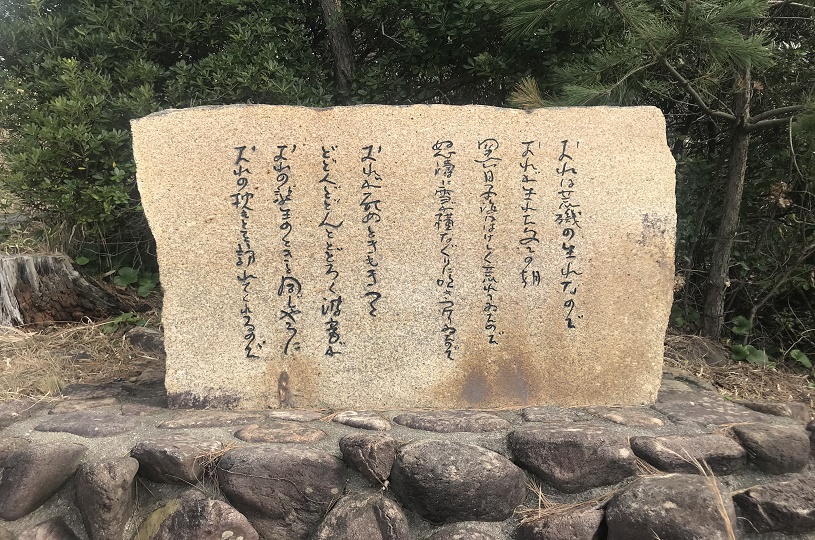 おれは荒磯の生れなのだ
おれが生れた冬の朝
黒い日本海ははげしく荒れてゐたのだ
怒濤に雪が横なぐりに吹きつけてゐたのだ
おれが死ぬときもきつと
どどんどどんととどろく波音が
おれの誕生のときと同じやうに
おれの枕もとを訪れてくれるのだ